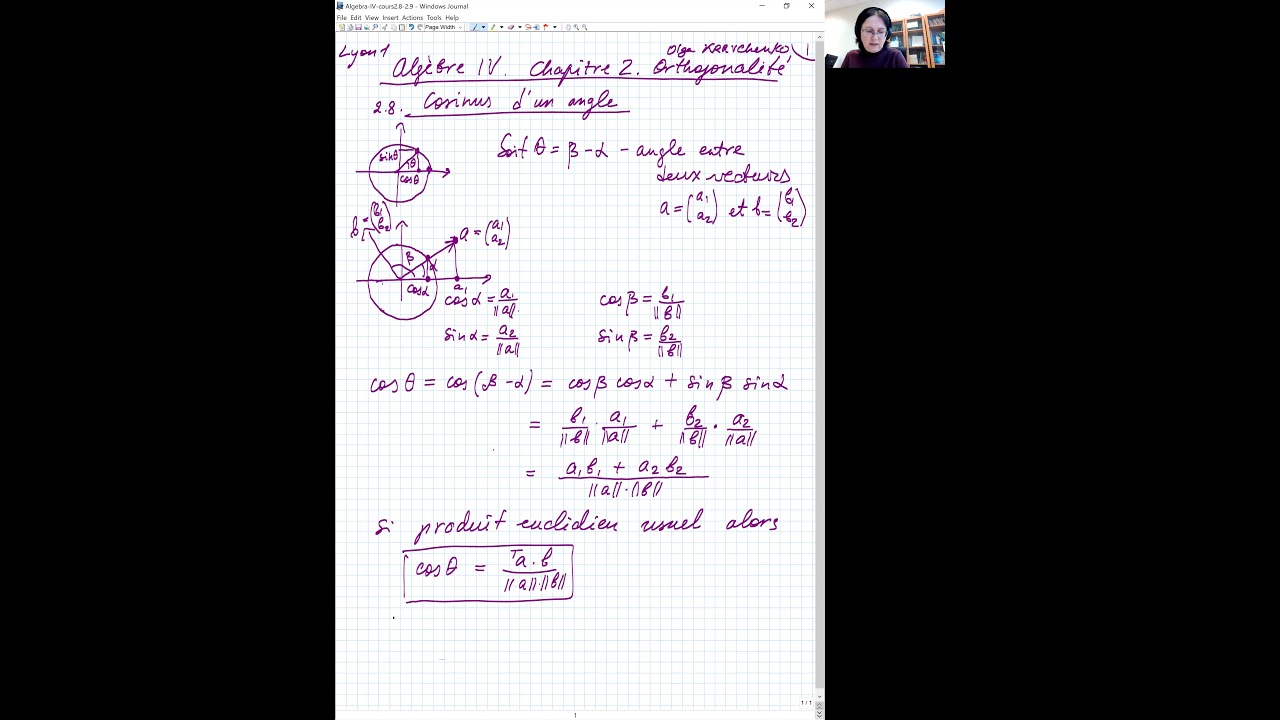 Algebra-IV-cours2.8-2.9 - Windows Journal
File Edit View Insert Actions Tools Help
Page Width
Lyon 1
Olga Kravchenko 1
Algèbre IV. Chapitre 2. Orthogonalité
2.8. Cosinus d'un angle
sinθ
θ
cosθ
Soit θ = β - α - angle entre
deux vecteurs
a = (a1 a2) et b = (b1 b2)
b = (b1 b2)
a = (a1 a2)
β
α
cosα a1
cosα = a1/||a||
cosβ = b1/||b||
sinα = a2/||a||
sinβ = b2/||b||
cosθ = cos(β - α) = cosβ cosα + sinβ sinα
= b1/||b|| · a1/||a|| + b2/||b|| · a2/||a||
= (a1b1 + a2b2)/(||a||·||b||)
Si produit euclidien usuel alors
cosθ = ᵀa·b/(||a||·||b||)
1 / 1
1